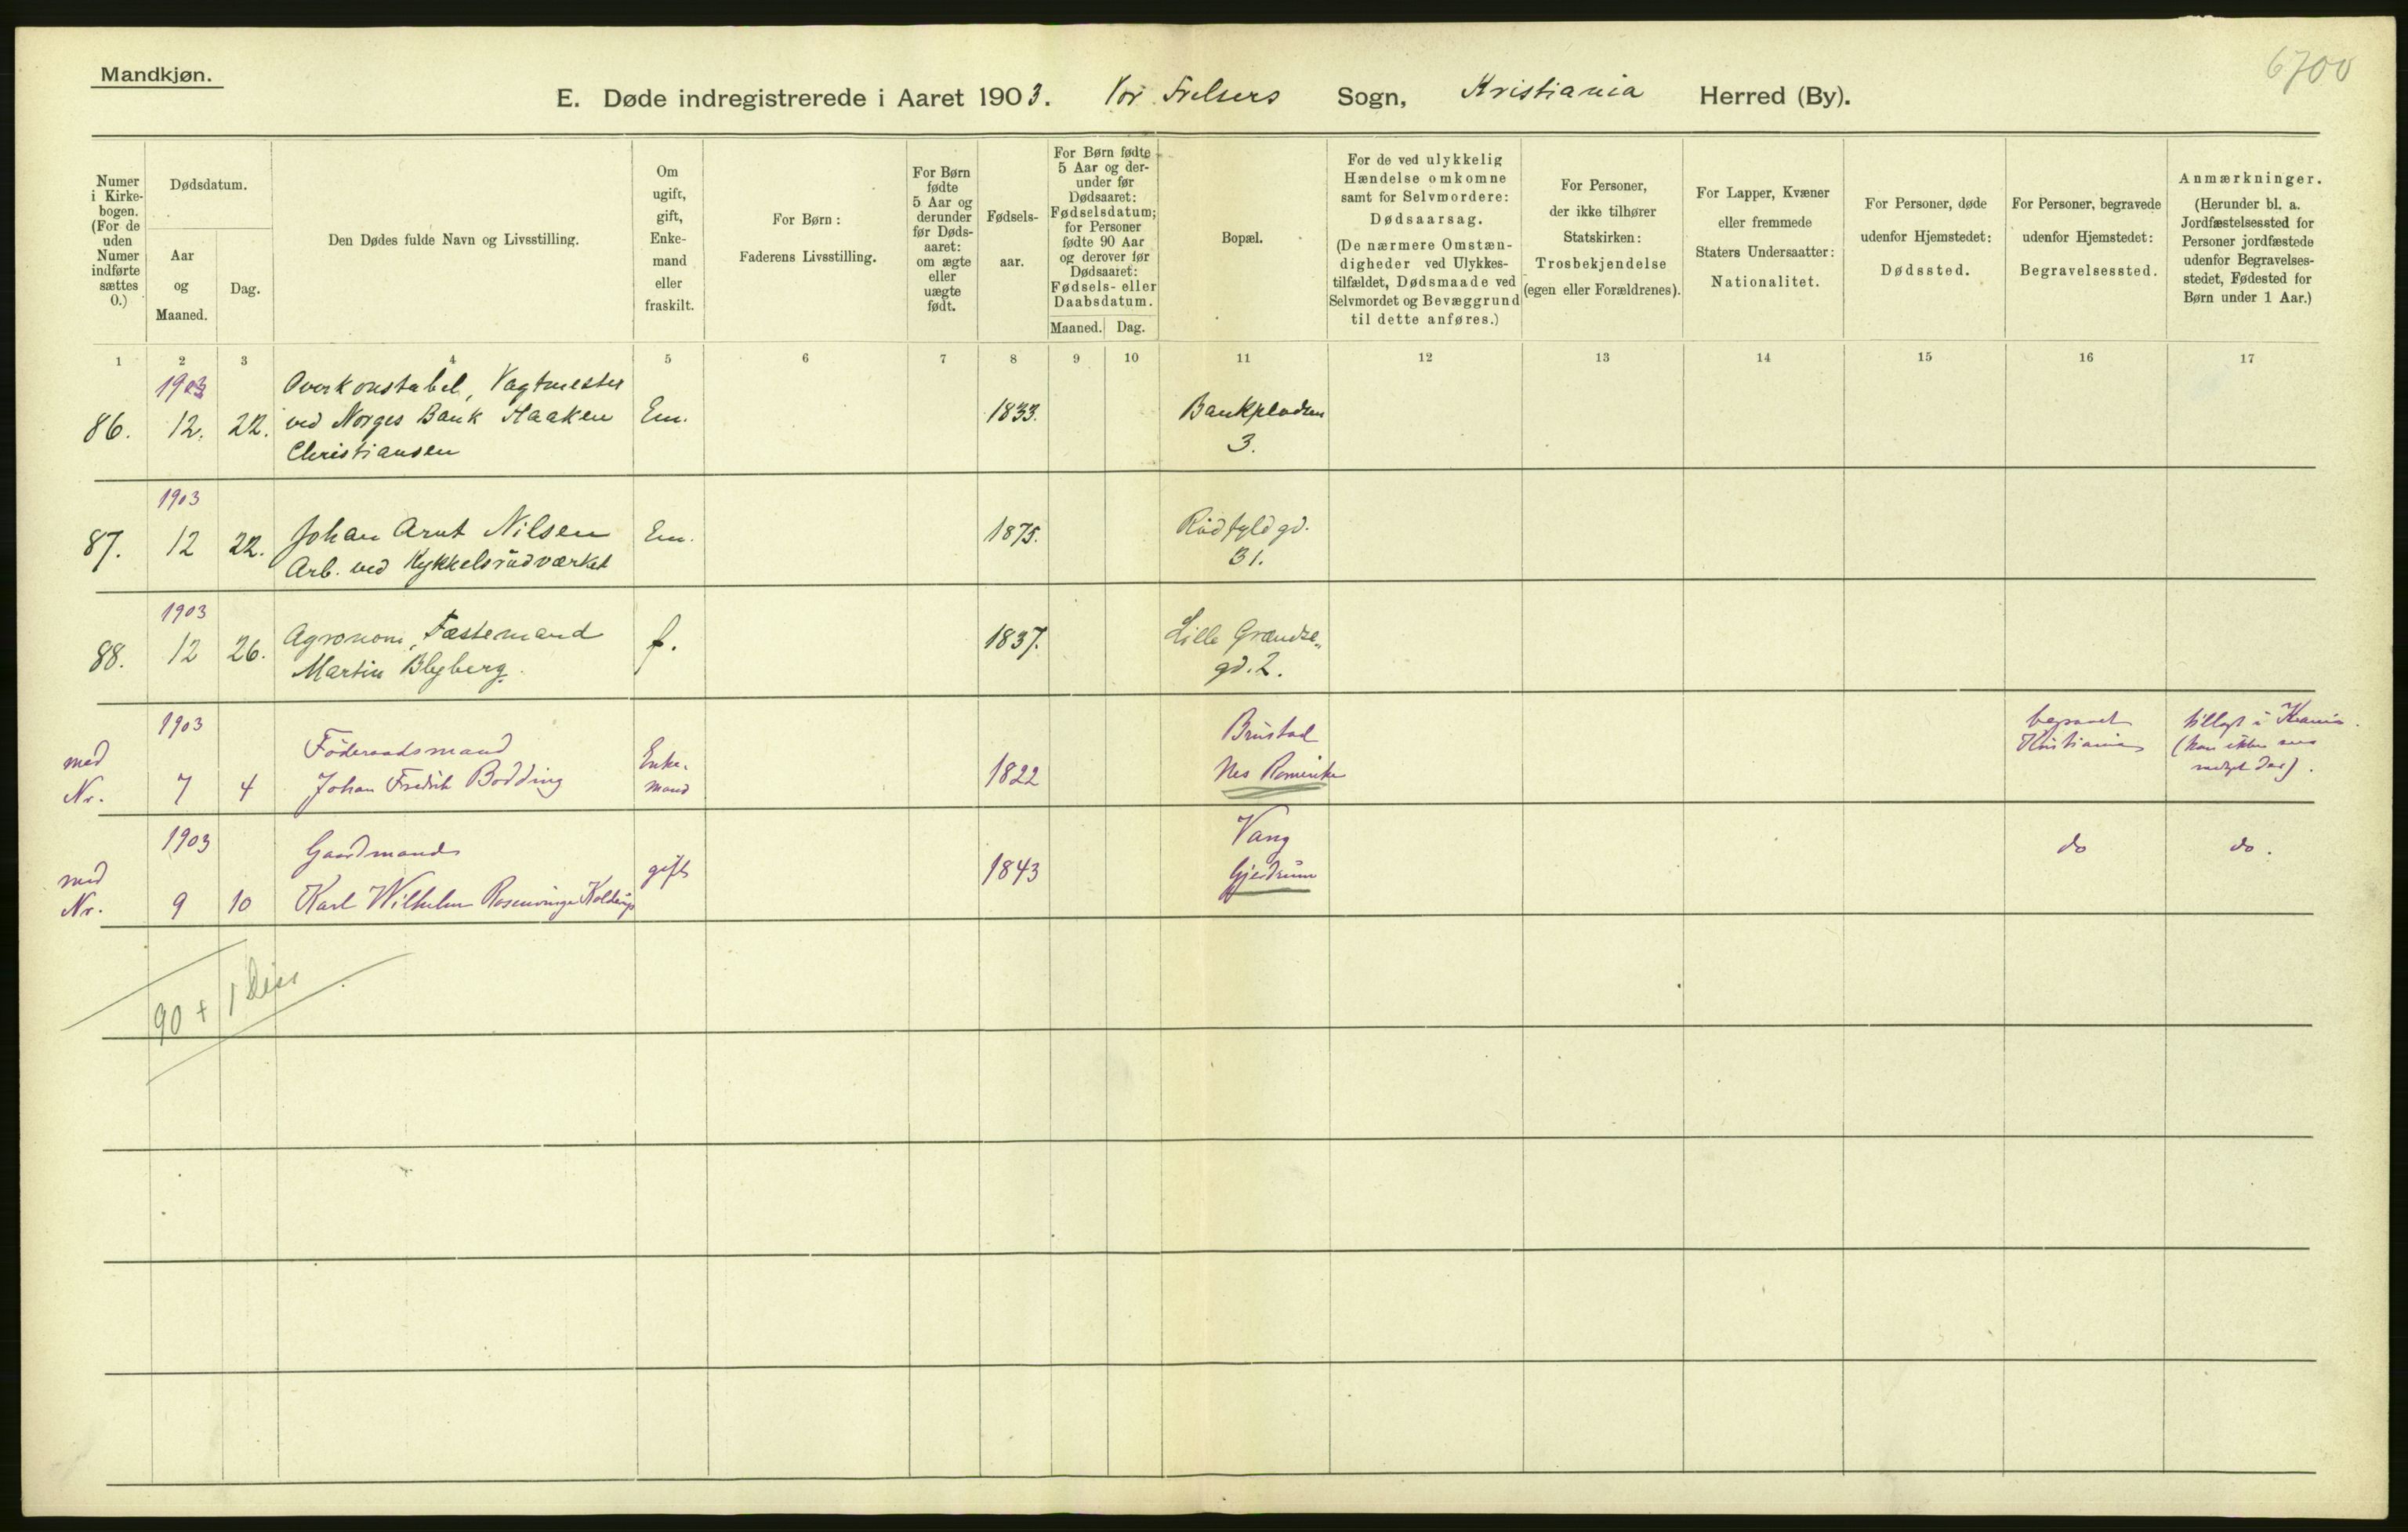 Mandkjøn.
6700
E. Døde indregistrerede i Aaret 1903. Vor Frelsers Sogn, Kristiania Herred (By).
Numer i Kirke-bogen. (For de uden Numer indførte sættes 0.)
Dødsdatum.
Aar og Maaned.
Dag.
Den Dødes fulde Navn og Livsstilling.
Om ugift, gift, Enke-mand eller fraskilt.
For Børn: Faderens Livsstilling.
For Børn fødte 5 Aar og derunder før Døds-aaret: om ægte eller uægte født.
Fødsels-aar.
For Børn fødte 5 Aar og der-under før Dødsaaret: Fødselsdatum; for Personer fødte 90 Aar og derover før Dødsaaret: Fødsels- eller Daabsdatum.
Maaned. Dag.
Bopæl.
For de ved ulykkelig Hændelse omkomne samt for Selvmordere: Dødsaarsag. (De nærmere Omstæn-digheder ved Ulykkes-tilfældet, Dødsmaade ved Selvmordet og Bevæggrund til dette anføres.)
For Personer, der ikke tilhører Statskirken: Trosbekjendelse (egen eller Forældrenes).
For Lapper, Kvæner eller fremmede Staters Undersaatter: Nationalitet.
For Personer, døde udenfor Hjemstedet: Dødssted.
For Personer, begravede udenfor Hjemstedet: Begravelsessted.
Anmærkninger. (Herunder bl. a. Jordfæstelsessted for Personer jordfæstede udenfor Begravelses-stedet, Fødested for Børn under 1 Aar.)
1 2 3 4 5 6 7 8 9 10 11 12 13 14 15 16 17
1903 Overkonstabel, Vagtmester
86. 12. 22. ved Norges Bank Haaken Em. 1833. Bankpladsen
Christiansen 3.
1903
87. 12 22. Johan Arnt Nilsen Em. 1875. Rådhusgd.
Arb. ved Kykkelsrudværket 31.
1903
88. 12 26. Agronom, Fæstemand f. 1837. Lille Grændse-
Martin Blyberg. gd. 2.
1903 Føderaadsmand Brustad begravet tillagt i Krania.
med Enke- Nes Romerike Kristiania (kan ikke
Nr. 7 4 Johan Fredrik Bodding mand 1822
1903 Gaardmand Vang do do.
med gift 1843 Gjerdrum
Nr. 9 10 Karl Wilhelm Rosenvinge Kolderup
90 + 1 Diss